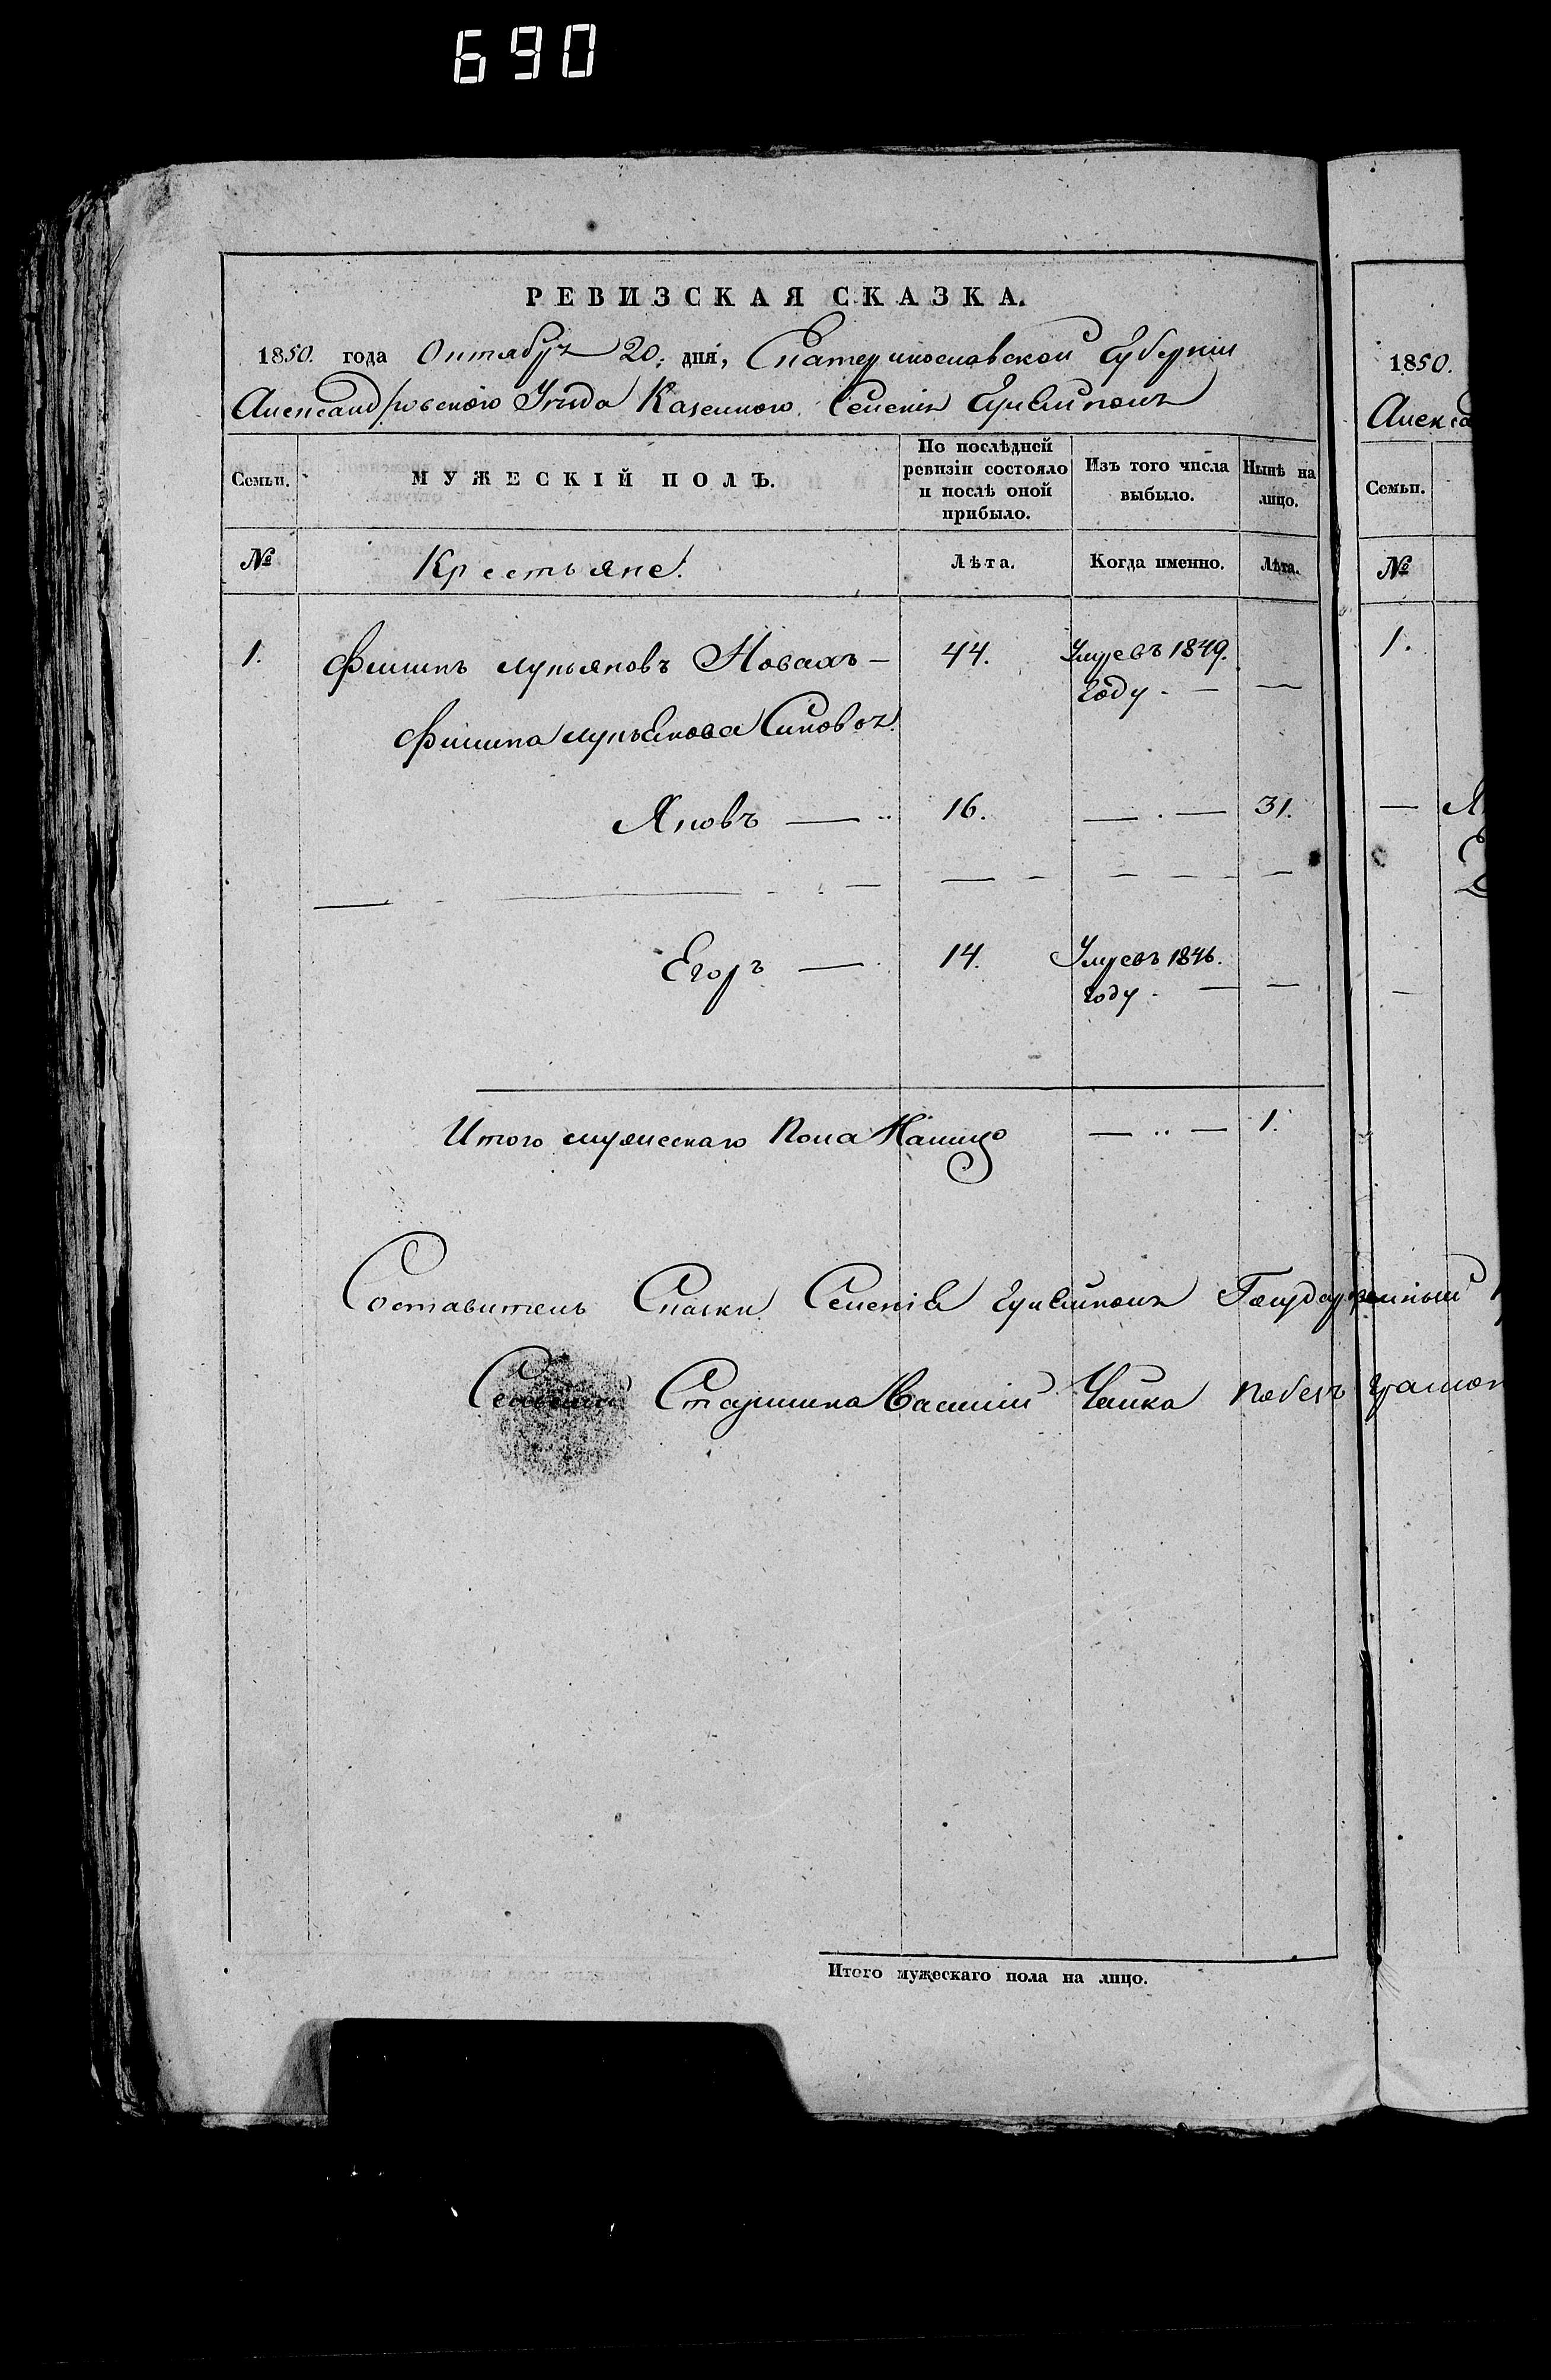 690
РЕВИЗСКАЯ СКАЗКА.
1850. года Октября 20. дня, Екатеринославской Губерніи
Александровского Уѣзда Казенного Селенія Гуляйполя
Семьи.
МУЖЕСКІЙ ПОЛЪ.
По послѣдней ревизіи состояло и послѣ оной прибыло.
Изъ того числа выбыло.
Нынѣ на лицо.
№
Крестьяне.
Лѣта.
Когда именно.
Лѣта.
1. Филипъ Лукьяновъ Новахъ 44. Умре въ 1849. году
Филипа Лукьянова Синовя
Яковъ 16. 31.
Егоръ 14. Умре въ 1846. году
Итого мужескаго Пола Налицо 1.
Составитель Сказки Селенія Гуляйполя Государственный
Старшина Василий Чайка
Итого мужескаго пола на лицо.
1850.
Алекса
Семьи.
№
1.